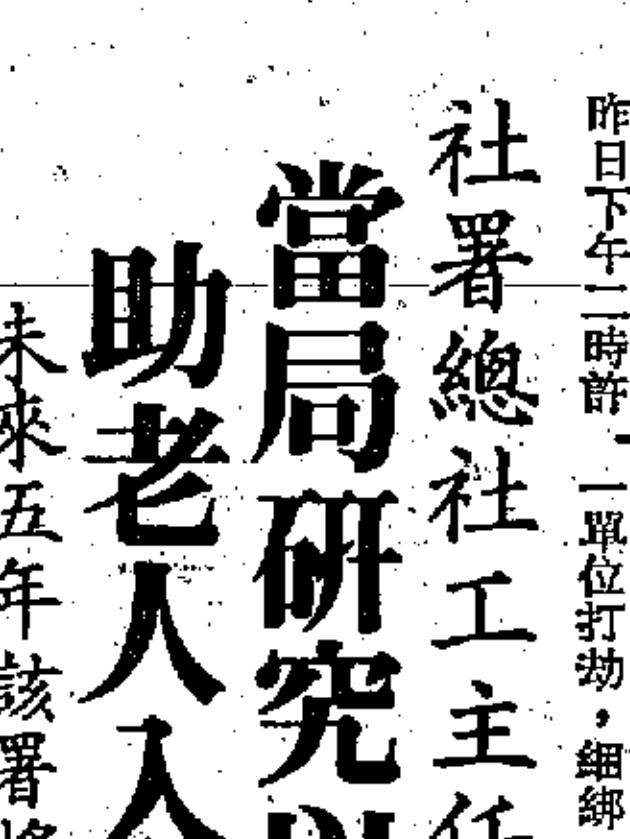 昨日下午二時許
一單位打劫，綑綁
社署總社工主任
當局研究以
助老人入
未來五年該署將